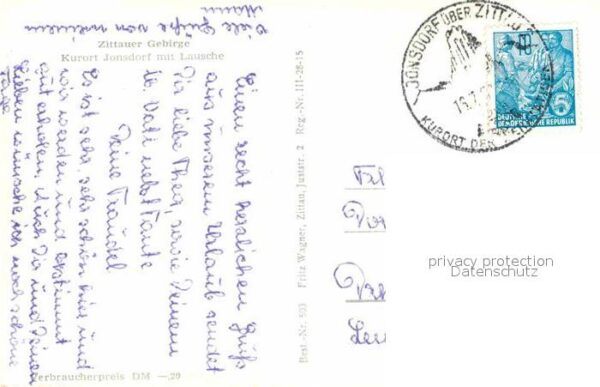 Zittauer Gebirge
Kurort Jonsdorf mit Lausche
Einen recht herzlichen Gruß
aus unserem Urlaub sendet
Dir liebe Theg, sowie Deinem
lb. Vati nebst Tante
Deine Traudel
Es ist sehr, sehr schön hier und
wir werden uns bestimmt
gut erholen. Auch Dir und Deinen
Lieben wünsche ich noch schöne
Tage
Viele Grüße von meinem
Mann
Verbraucherpreis DM —,20
Best.-Nr. 503 Fritz Wagner, Zittau, Juststr. 2 Reg.-Nr. III-28-15
JONSDORF ÜBER ZITTAU
KURORT DER
DEUTSCHE
DEMOKRATISCHE REPUBLIK
5
privacy protection
Datenschutz